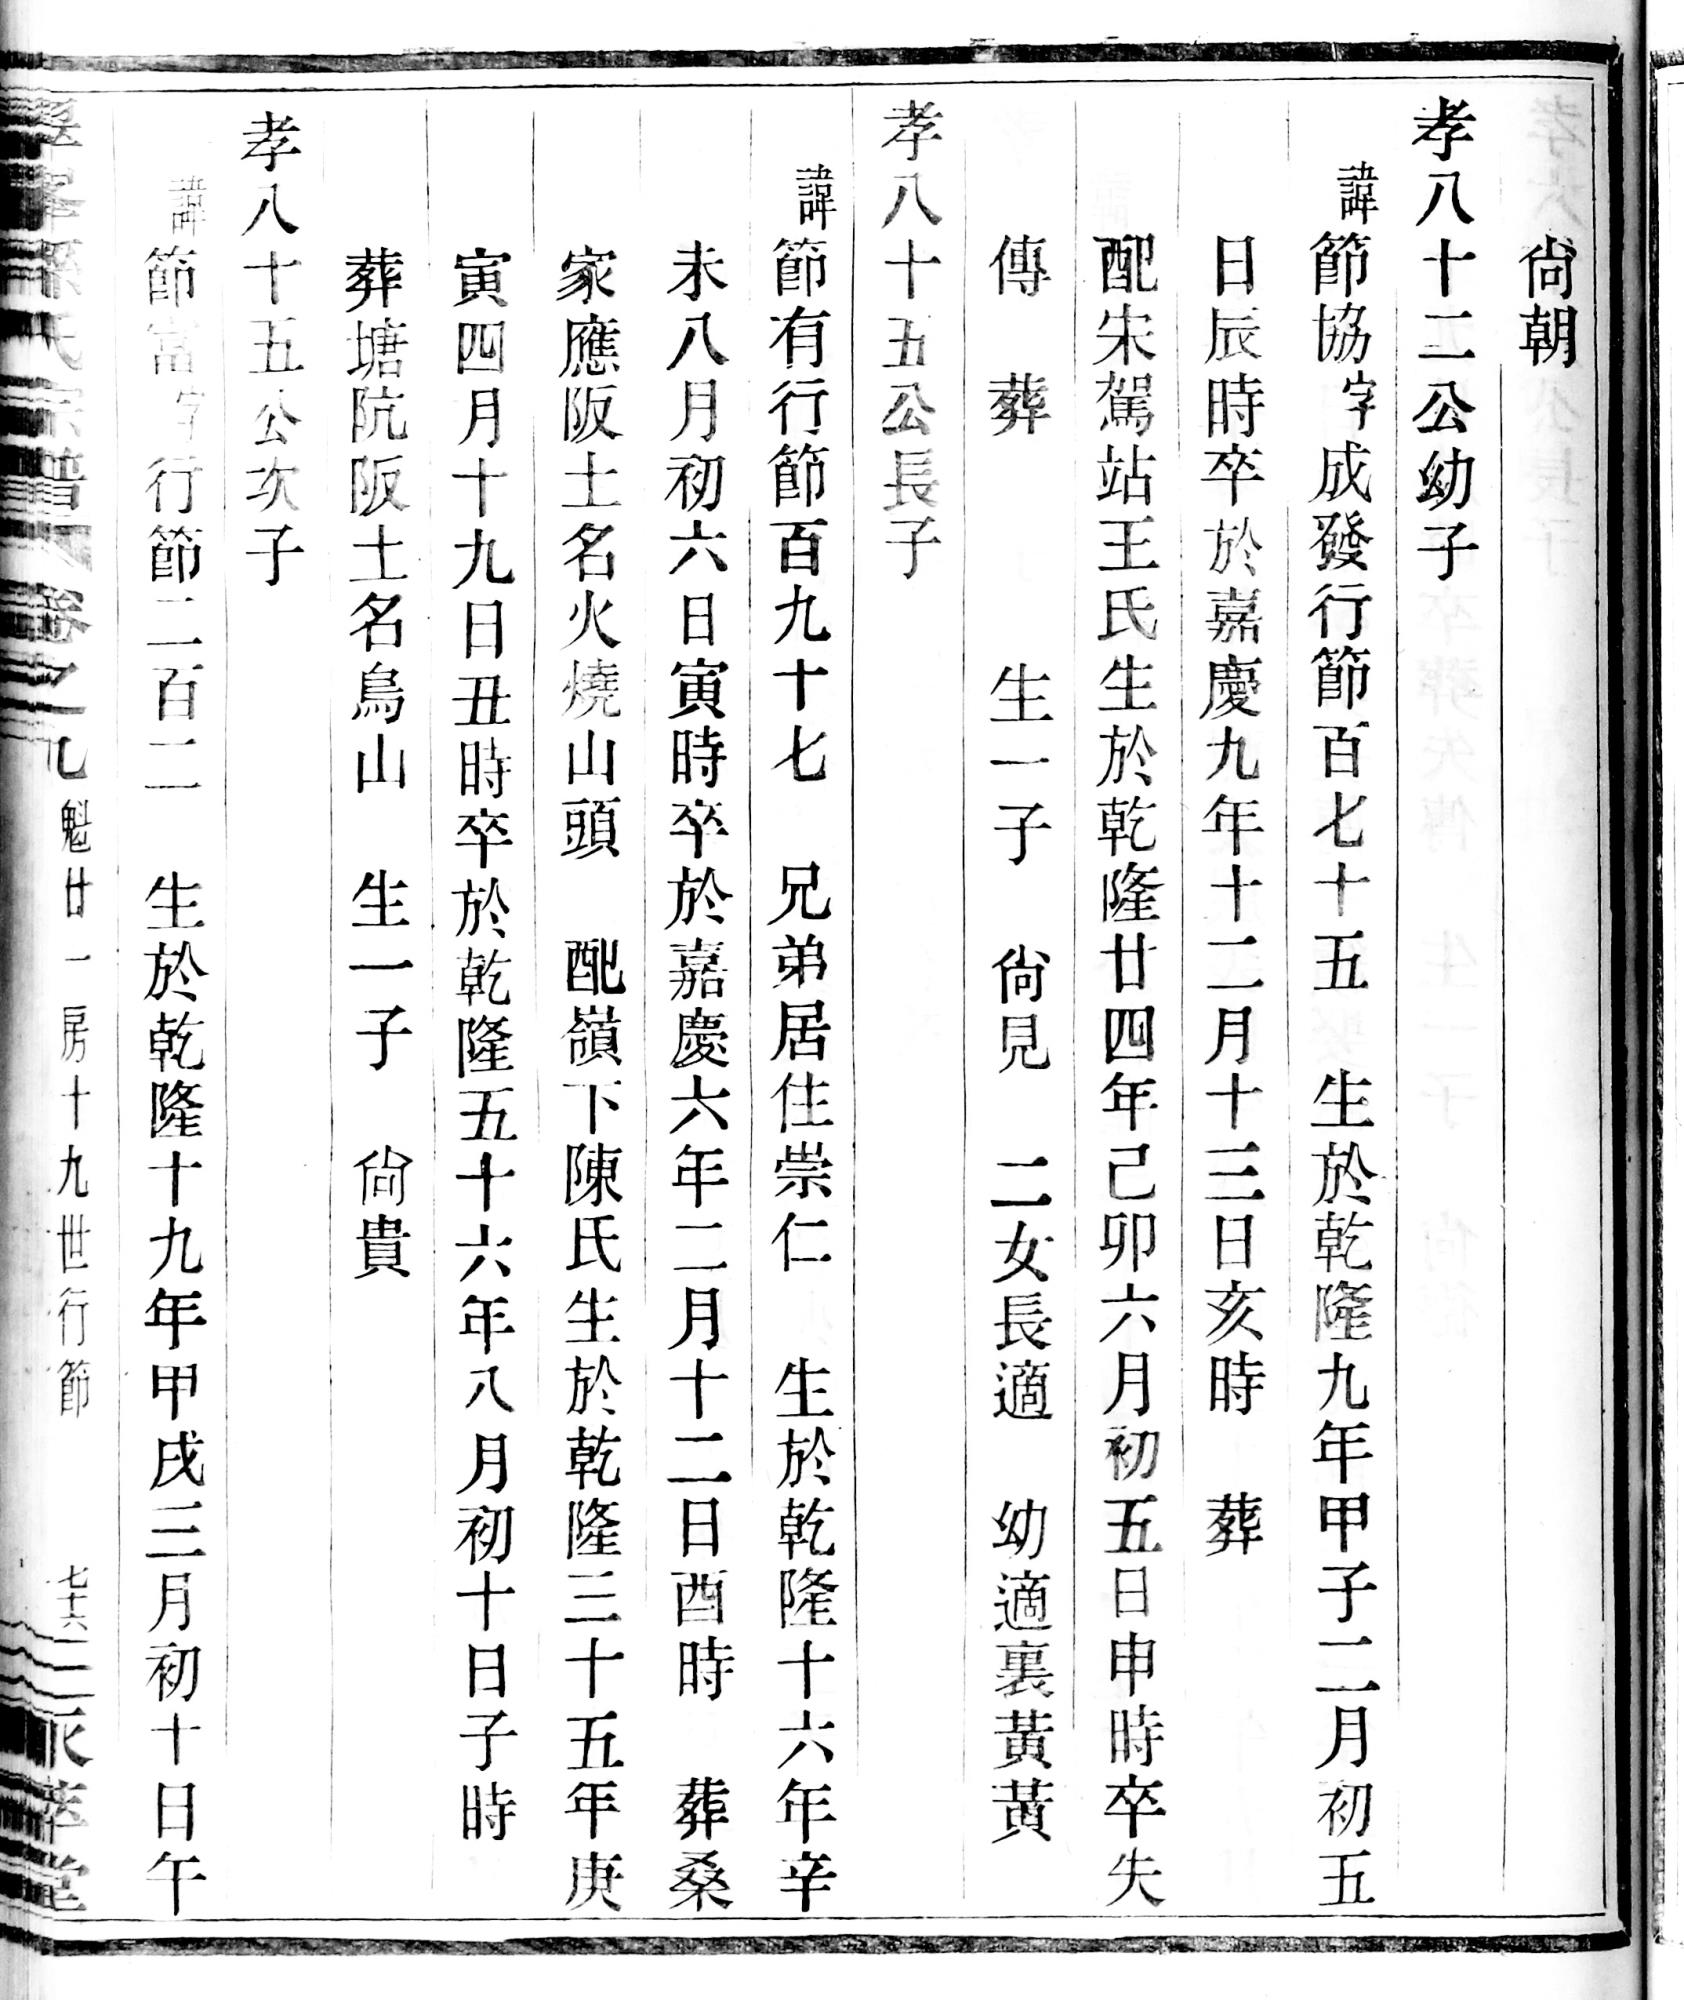 尙朝
孝八十二公幼子
諱節協字成發行節百七十五　生於乾隆九年甲子二月初五
日辰時卒於嘉慶九年十二月十三日亥時　葬
配宋駕站王氏生於乾隆廿四年己卯六月初五日申時卒失
傳　葬　　　生一子　尙見　二女長適　幼適裏黃黃
孝八十五公長子
諱節有行節百九十七　兄弟居住崇仁　生於乾隆十六年辛
未八月初六日寅時卒於嘉慶六年二月十二日酉時　葬桑
家應阪土名火燒山頭　配嶺下陳氏生於乾隆三十五年庚
寅四月十九日丑時卒於乾隆五十六年八月初十日子時
葬塘阬阪土名鳥山　生一子　尙貴
孝八十五公次子
諱節富字　行節二百二　生於乾隆十九年甲戌三月初十日午
孫氏宗譜　卷之九　魁廿一房十九世行節　七十六　萃堂